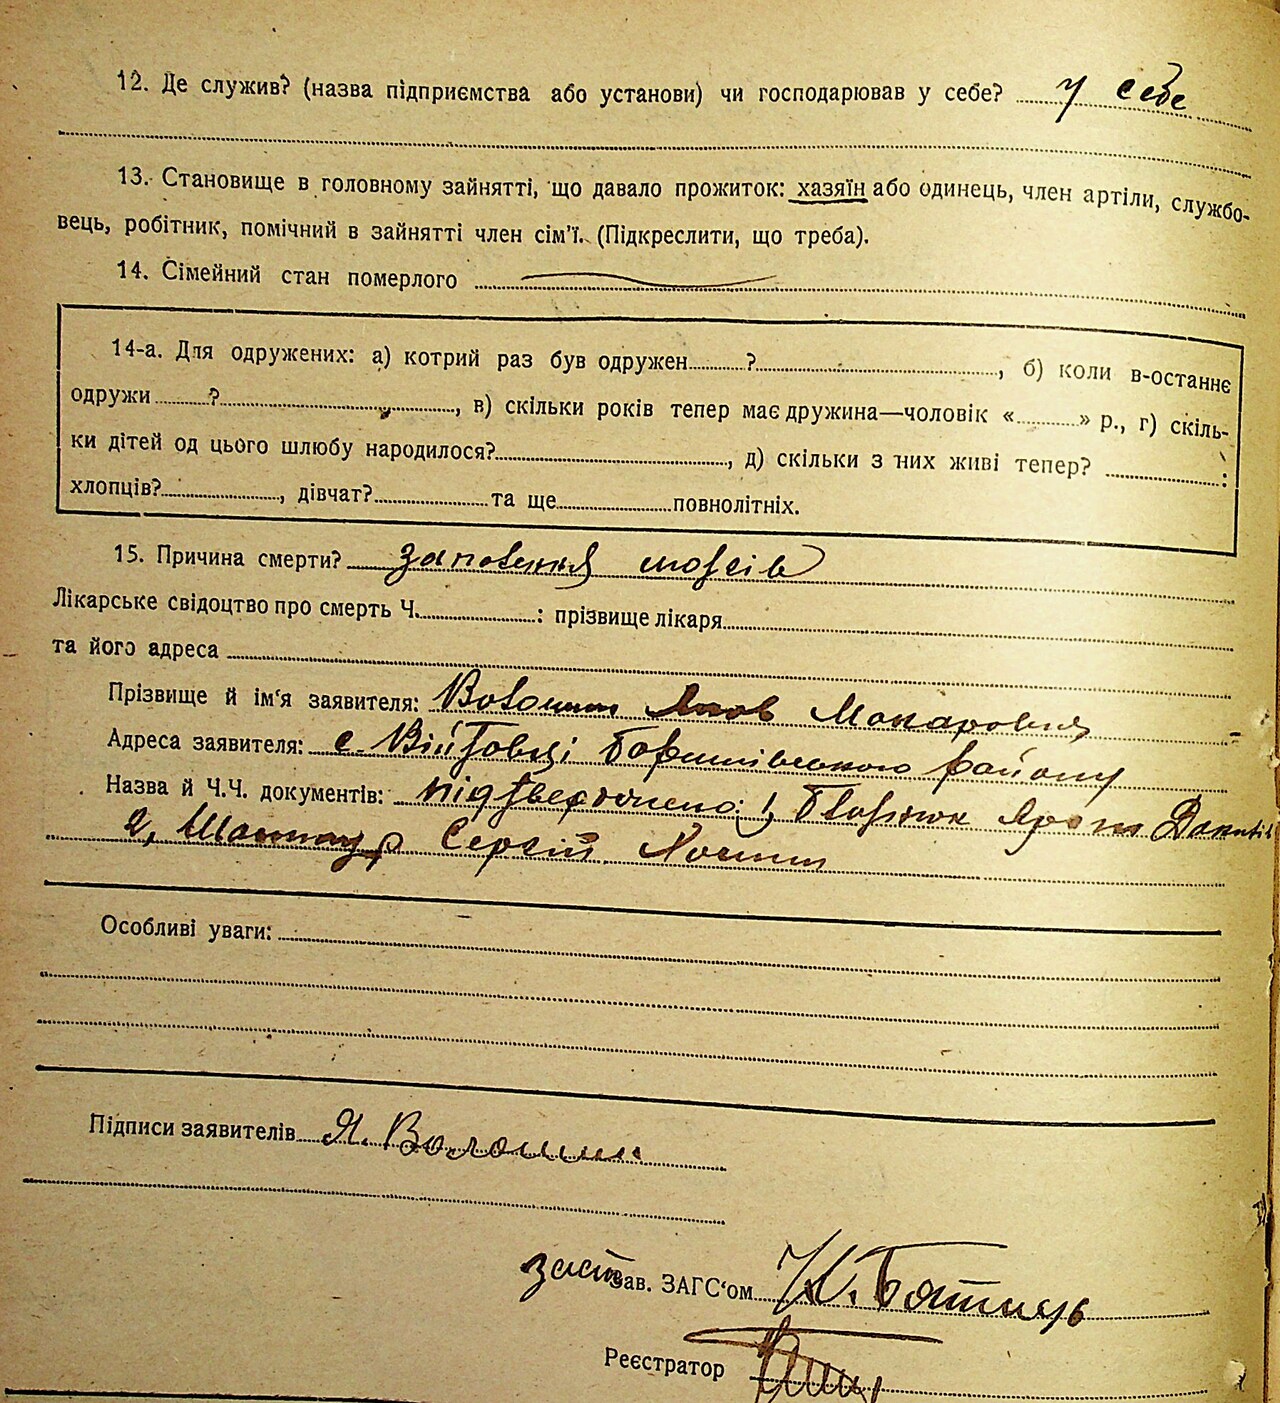 12. Де служив? (назва підприємства або установи) чи господарював у себе? у себе
13. Становище в головному зайнятті, що давало прожиток: хазяїн або одинець, член артіли, службо-
вець, робітник, помічний в зайнятті член сім'ї. (Підкреслити, що треба).
14. Сімейний стан померлого
14-а. Для одружених: а) котрий раз був одружен ? , б) коли в-останнє
одружи ? , в) скільки років тепер має дружина—чоловік « » р., г) скіль-
ки дітей од цього шлюбу народилося? , д) скільки з них живі тепер? :
хлопців? , дівчат? та ще повнолітніх.
15. Причина смерти? запалення мозгів
Лікарське свідоцтво про смерть Ч. : прізвище лікаря
та його адреса
Прізвище й ім'я заявителя: Волошин Яков Макарович
Адреса заявителя: с. Війтовці району
Назва й Ч.Ч. документів: підтверджено: 1,
2, Сергій
Особливі уваги:
Підписи заявителів Я. Волошин
заст Зав. ЗАГС'ом
Реєстратор